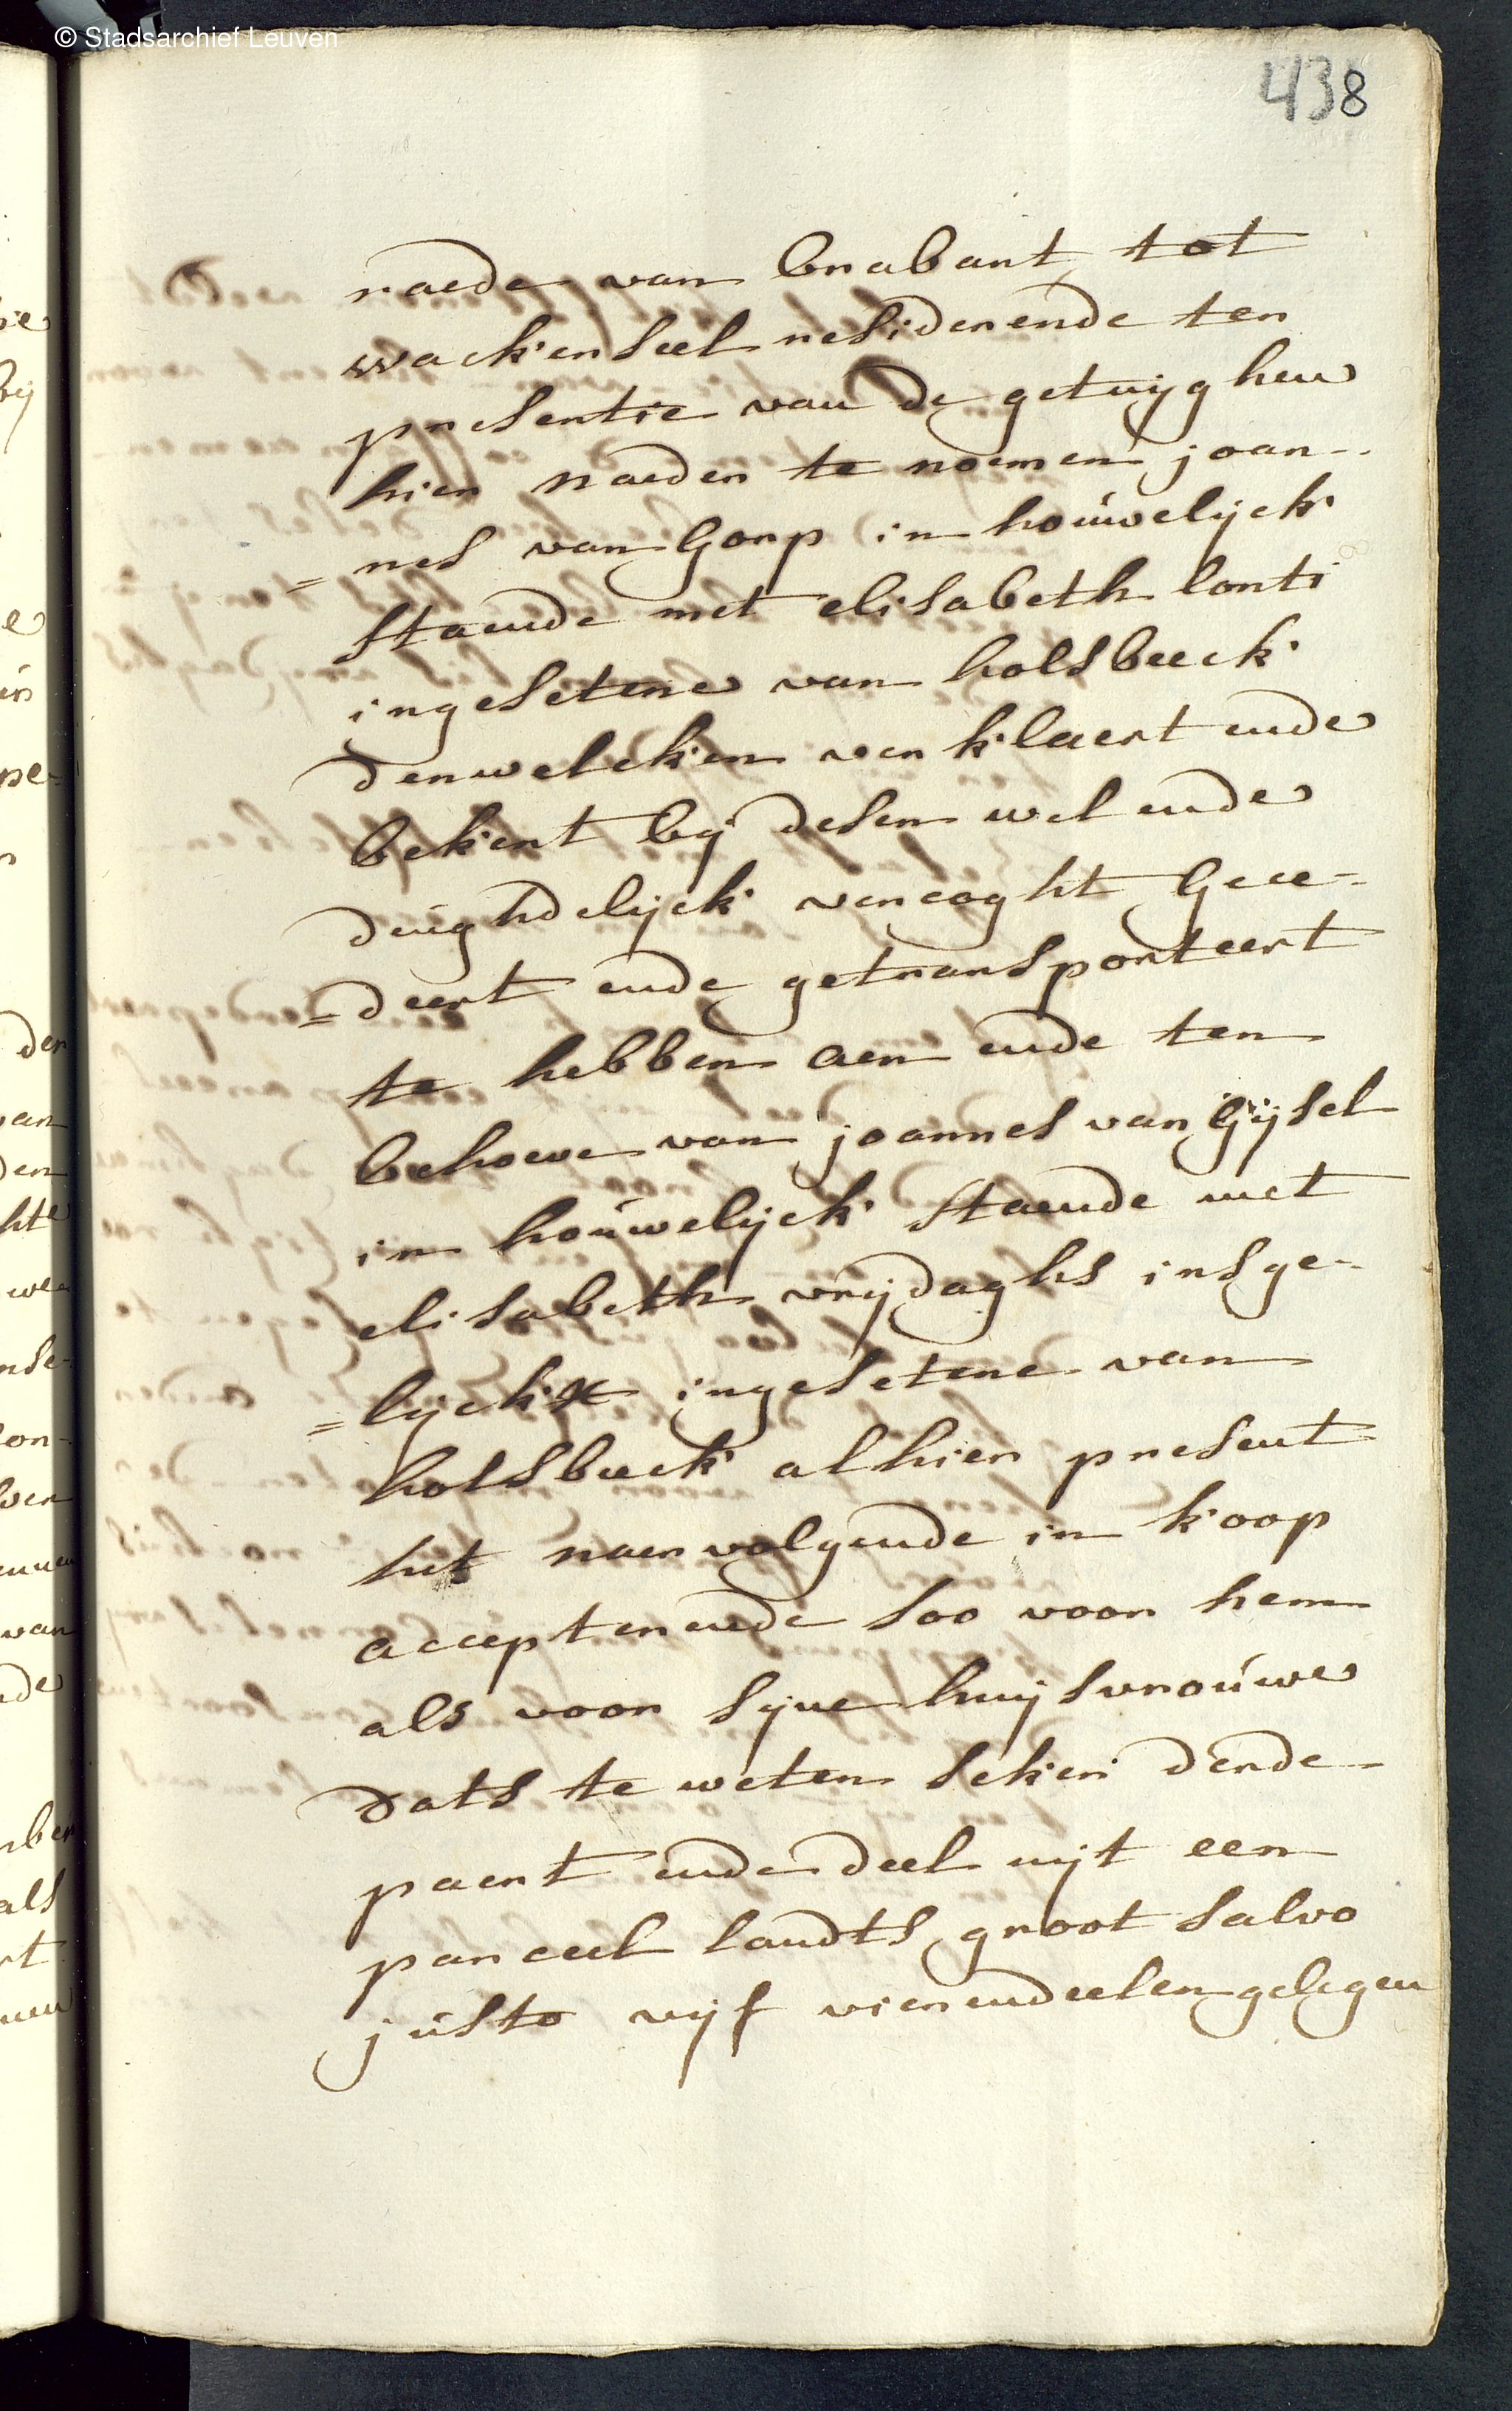 © Stadsarchief Leuven
438
raede van brabant tot
wackerseel residerende ten
presentie van de getuijghen
hier naeder te noemen joan-
= nes van Gorp in houwelijck
staende met elisabeth lonti
ingesetene van holsbeeck
denwelcken verklaert ende
bekent bij desen wel ende
deughdelijck vercoght Gece-
= deert ende getransporteert
te hebben aen ende ten
behoeve van joannes van Gijsel
in houwelijck staende met
elisabeth vrijdaghs insge-
= lijckx ingesetene van
holsbeeck alhier present
het naervolgende in koop
accepterende soo voor hem
als voor syne huijsvrouwe
dats te weten seker derde-
paert ende deel uijt een
parceel landts groot salvo
justo vijf vierendeelen gelegen